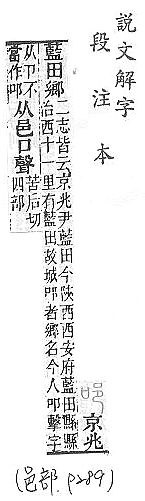 說文解字
段注本
京兆
藍田鄉
二志皆云京兆尹藍田今陝西西安府藍田縣縣
治西十一里有藍田故城叩者鄉名今人叩擊字
从卩不
當作叩
从邑口聲
苦后切
四部
(邑部. p289)